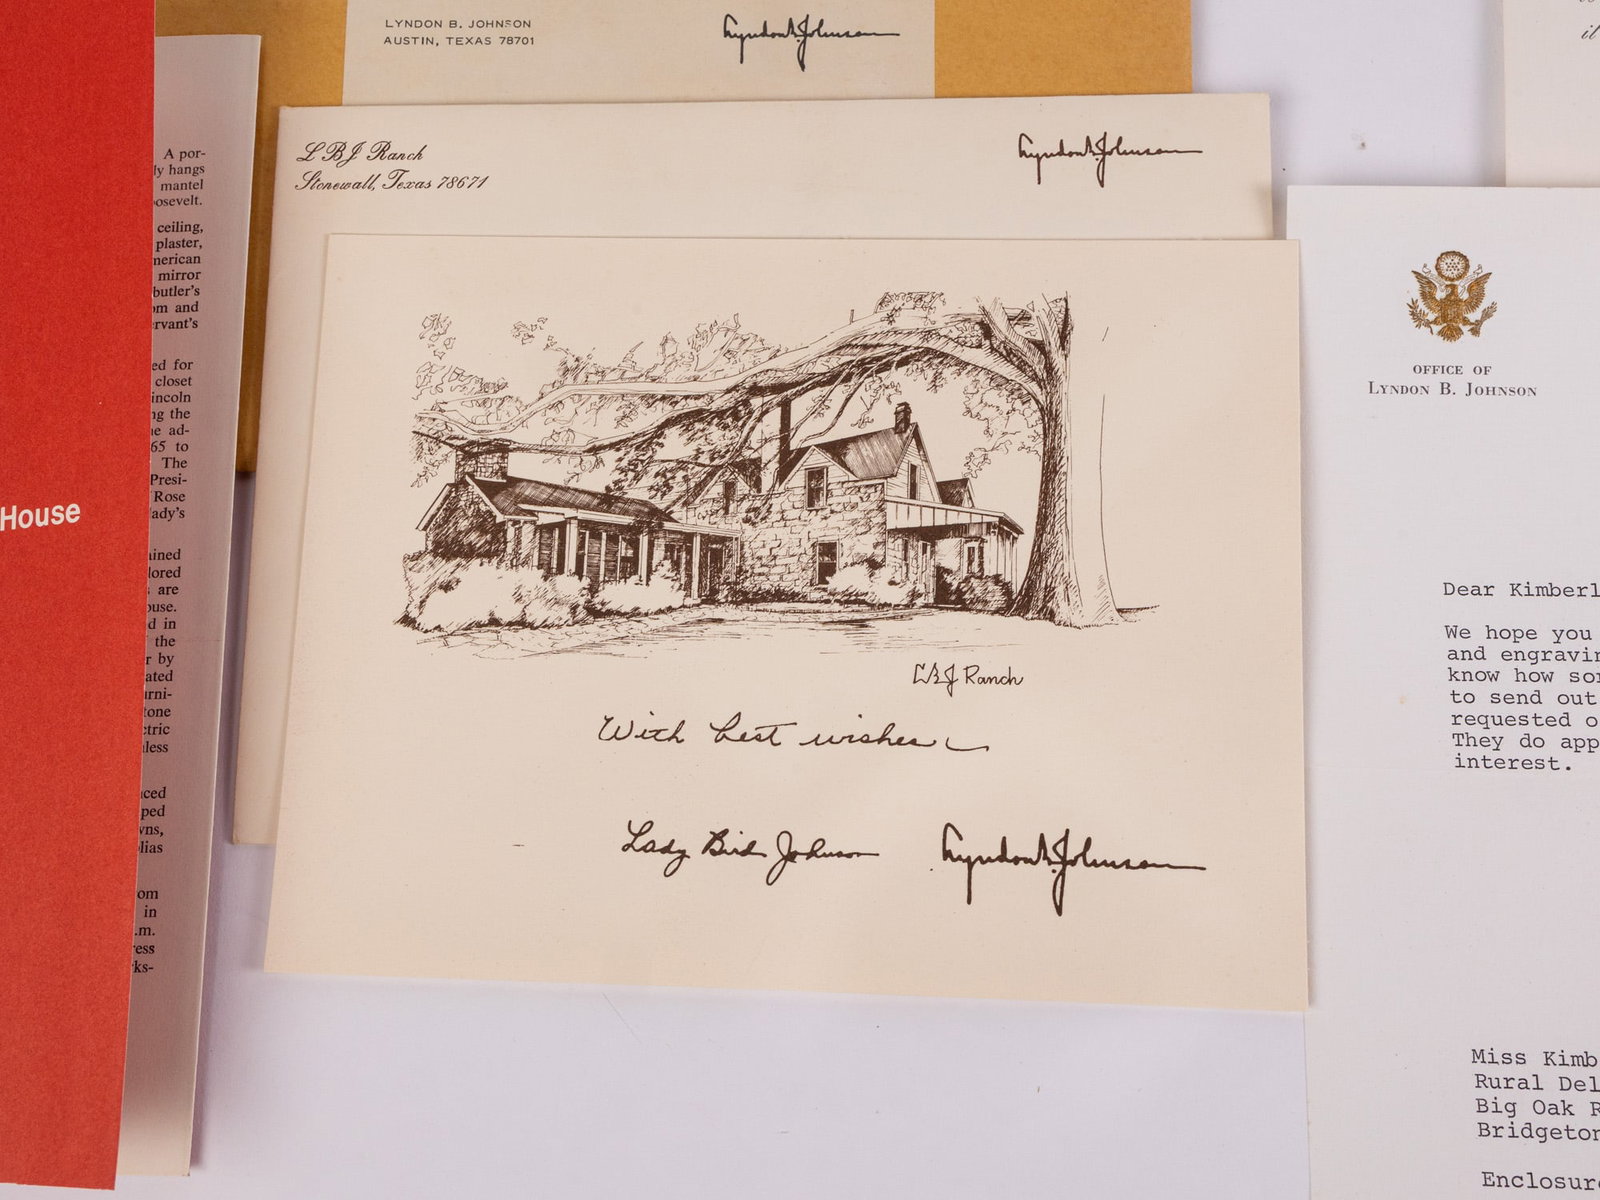 House
A por-
ly hangs
mantel
osevelt.
ceiling,
plaster,
merican
mirror
butler's
om and
rvant's
ed for
closet
incoln
ng the
he ad-
65 to
The
Presi-
Rose
lady's
ained
lored
are
ouse.
d in
the
r by
ated
urni-
tone
ctric
nless
ced
ped
wns,
lias
om
in
.m.
ress
ks-
LYNDON B. JOHNSON
AUSTIN, TEXAS 78701
Lyndon B. Johnson
LBJ Ranch
Stonewall, Texas 78671
Lyndon B. Johnson
LBJ Ranch
With best wishes
Lady Bird Johnson Lyndon B. Johnson
it
OFFICE OF
LYNDON B. JOHNSON
Dear Kimberl
We hope you
and engravin
know how sor
to send out
requested o
They do app
interest.
Miss Kimb
Rural Del
Big Oak R
Bridgeton
Enclosure